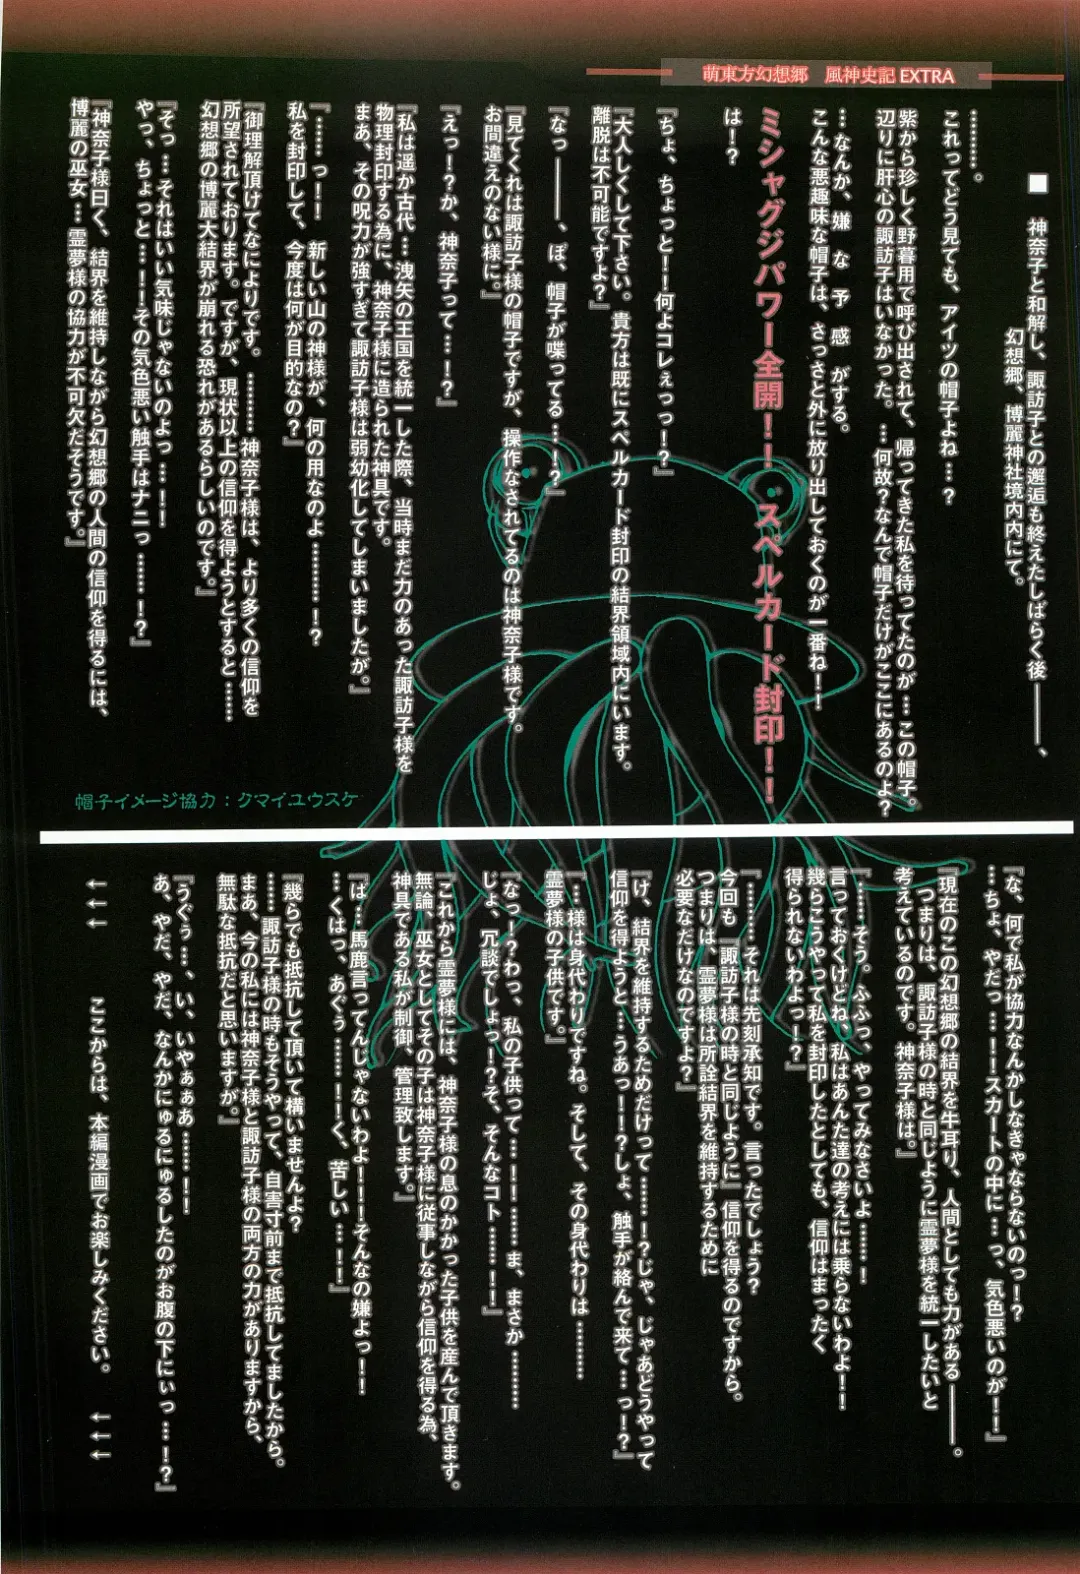 萌東方幻想郷 風神史記 EXTRA
■ 神奈子と和解し、諏訪子との邂逅も終えたしばらく後―――、
幻想郷、博麗神社境内内にて。
………。
これってどう見ても、アイツの帽子よね…?
紫から珍しく野暮用で呼び出されて、帰ってきた私を待ってたのが…この帽子。
辺りに肝心の諏訪子はいなかった。…何故?なんで帽子だけがここにあるのよ?
…なんか、嫌な予感がする。
こんな悪趣味な帽子は、さっさと外に放り出しておくのが一番ね!!
ミシャグジパワー全開!!スペルカード封印!!
は!?
『ちょ、ちょっと!!何よコレぇっっ!?』
『大人しくして下さい。貴方は既にスペルカード封印の結界領域内にいます。
離脱は不可能ですよ?』
『なっ―――、ぼ、帽子が喋ってる…!?』
『見てくれは諏訪子様の帽子ですが、操作なされてるのは神奈子様です。
お間違えのない様に。』
『えっ!?か、神奈子って…!?』
『私は遥か古代…洩矢の王国を統一した際、当時まだ力のあった諏訪子様を
物理封印する為に、神奈子様に造られた神具です。
まあ、その呪力が強すぎて諏訪子様は弱幼化してしまいましたが。』
『……っ!! 新しい山の神様が、何の用なのよ………!?
私を封印して、今度は何が目的なの?』
『御理解頂けてなによりです。………神奈子様は、より多くの信仰を
所望されております。ですが、現状以上の信仰を得ようとすると……
幻想郷の博麗大結界が崩れる恐れがあるらしいのです。』
『そっ…それはいい気味じゃないのよっ…!!
やっ、ちょっと…!!その気色悪い触手はナニっ……!?』
『神奈子様曰く、結界を維持しながら幻想郷の人間の信仰を得るには、
博麗の巫女…霊夢様の協力が不可欠だそうです。』
帽子イメージ協力:クマイユウスケ
『な、何で私が協力なんかしなきゃならないのっ!?
…ちょ、やだっ…!!スカートの中に…っ、気色悪いのが!!』
『現在のこの幻想郷の結界を牛耳り、人間としても力がある―――。
つまりは、諏訪子様の時と同じように霊夢様を統一したいと
考えているのです。神奈子様は。』
『……そう。ふふっ、やってみなさいよ……!
言っておくけどね、私はあんた達の考えには乗らないわよ!!
幾らこうやって私を封印したとしても、信仰はまったく
得られないわよっ!?』
『………それは先刻承知です。言ったでしょう?
今回も『諏訪子様の時と同じように』信仰を得るのですから。
つまりは、霊夢様は所詮結界を維持するために
必要なだけなのですよ?』
『け、結界を維持するためだけって……!?じゃ、じゃあどうやって
信仰を得ようと…うあっ!!?しょ、触手が絡んで来て…っ!?』
『…様は身代わりですね。そして、その身代わりは………
霊夢様の子供です。』
『なっ!?わっ、私の子供って…!!……ま、まさか………
じょ、冗談でしょっ!?そ、そんなコト……!!』
『これから霊夢様には、神奈子様の息のかかった子供を産んで頂きます。
無論、巫女としてその子は神奈子様に従事しながら信仰を得る為、
神具である私が制御、管理致します。』
『は…馬鹿言ってんじゃないわよ!!そんなの嫌よっ!!
…くはっ、あぐぅ……!!く、苦しい…!!』
『幾らでも抵抗して頂いて構いませんよ?
……諏訪子様の時もそうやって、自害寸前まで抵抗してましたから。
まあ、今の私には神奈子様と諏訪子様の両方の力がありますから、
無駄な抵抗だと思いますが。』
『うぐぅ…、い、いやぁぁあ……!!
あ、やだ、やだ、なんかにゅるにゅるしたのがお腹の下にいっ…!?』
←←← ここからは、本編漫画でお楽しみください。 ←←←